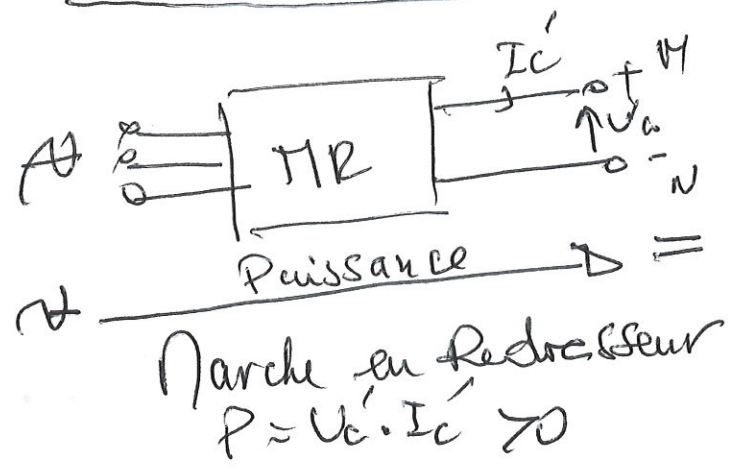 Ic'
+ M
MR
Uc'
- N
Puissance
=
Marche en Redresseur
P = Uc'. Ic' >0